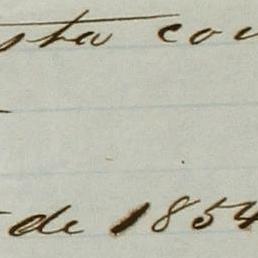 sta cou
de 1854